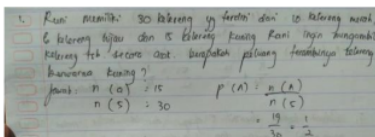 1. Runi memiliki 30 kelereng yg terdiri dari 10 kelereng merah,
6 kelereng hijau dan 15 kelereng kuning Rani ingin mengambil
kelereng tsb. secara acak. berapakah peluang terambilnya kelereng
berwarna kuning?
Jawab: n (A) = 15 P (A) = n (A)
n (S) = 30 n (S)
= 15 = 1
30 2